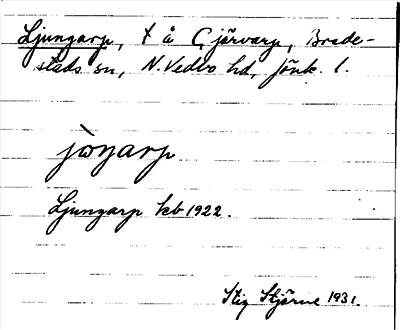 Ljungarp, t å Gjärvarp, Brede-
stads sn, N. Vedbo hd, Jönk. l.
jòŋarp
Ljungarp kb 1922.
Stig Stjärne 1931.